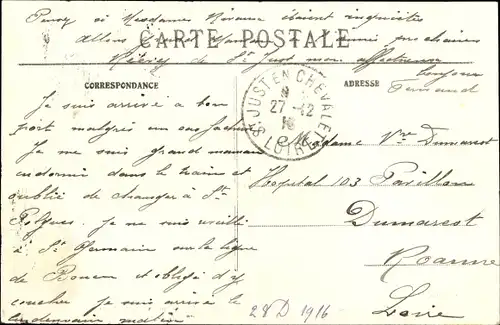 Percy si Mesdames étaient inquiètes
Allons prochaines
CARTE POSTALE
de St Just mon affectueux
bonjour
Fernand
CORRESPONDANCE
ADRESSE
ST JUST EN CHEVALET
27 -12
16
LOIRE
Je suis arrivé a bon
port malgré un
Je me suis grand maman
endormi dans le train et
oublié de changer à St
Je me suis reveillé
à St Germain sur la ligne
de Rouen et obligé d'y
coucher je suis arrivé le
lendemain matin
Madame Vve Dumarest
Hopital 103 Pavillon
Dumarest
Roanne
Loire
28 D 1916